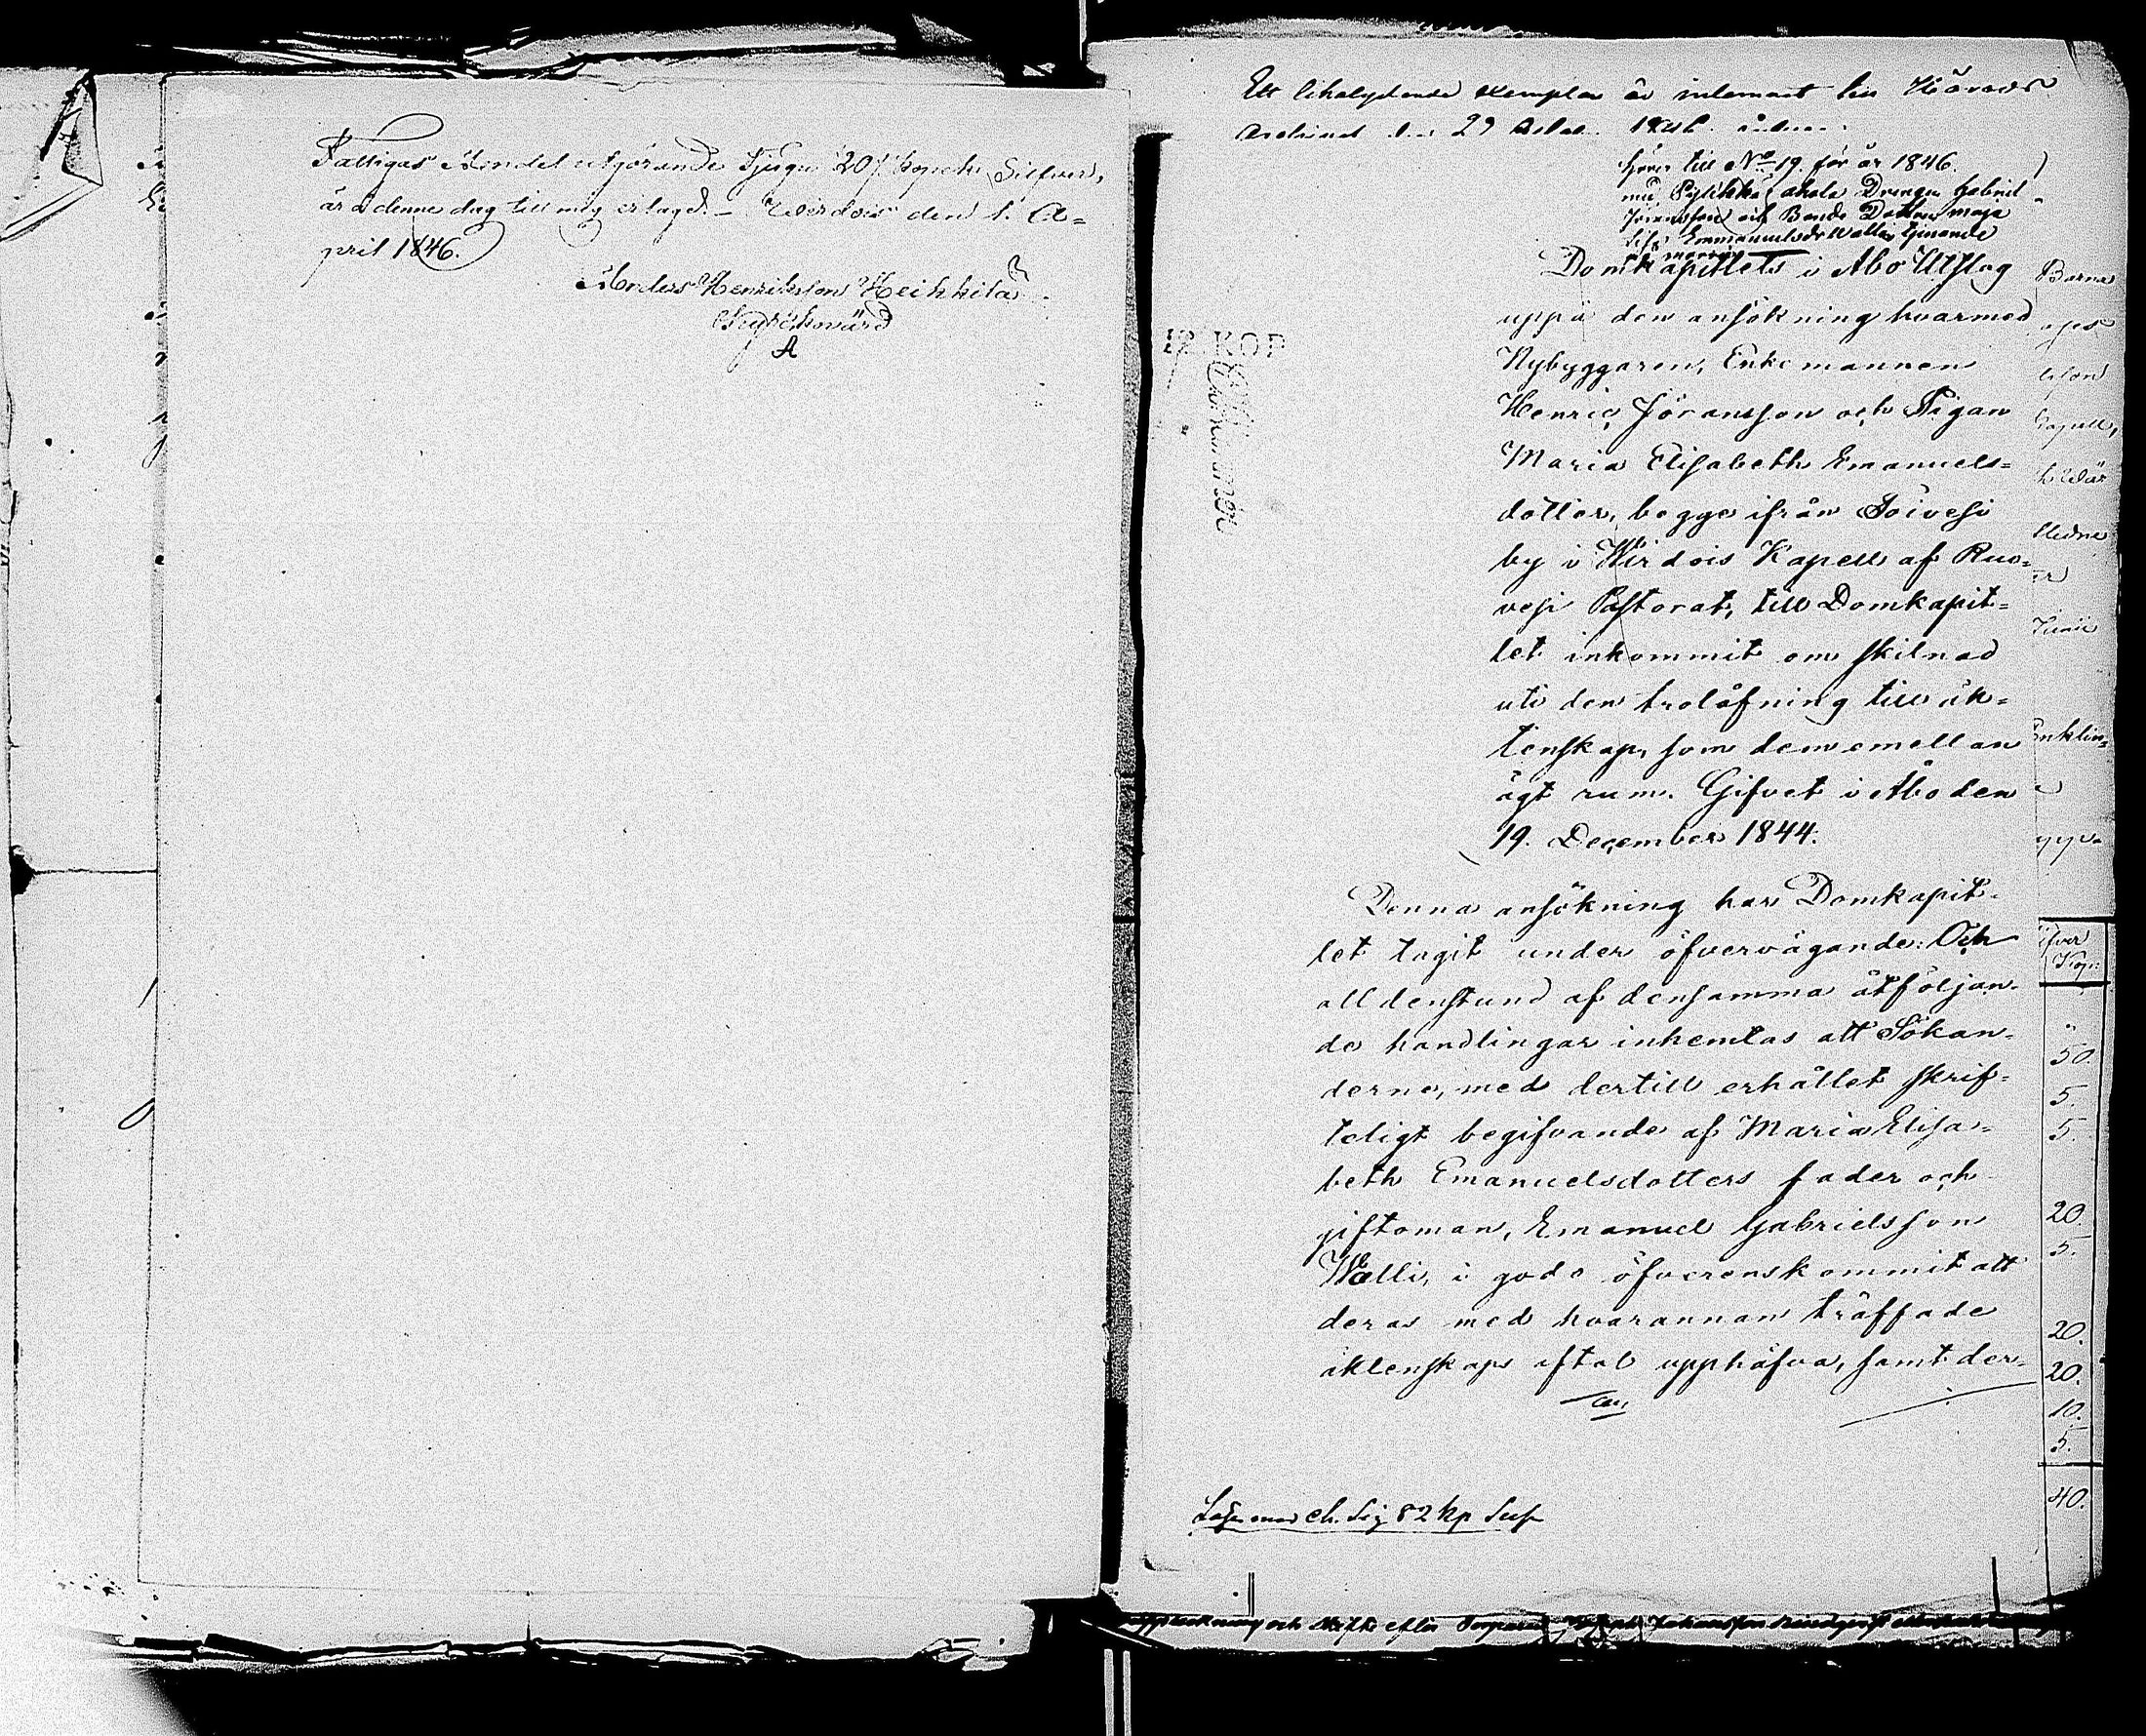 Fattigas Andel utgörande Tjugu 20/ kopek Silfver,
är å denne dag till mig erlagd. – Wirdois den 1. A=
pril 1846.
Anders Henriksson Heikkilä
Kyrckovärd
A
Ett likalydande exemplar är inlemnat till Härads
Archivet den 29 1846
hörer till No 19 för år 1846.
Drengen Gabriel
Jöransson och Bonde Dottren Maja
Lisa Emmanuelsdr
Domkapitlets i Åbo Utslag
uppå den ansökning hvarmed
Nybyggaren, Enkemannen
Henric Jöransson och Pigan
Maria Elisabeth Emanuels=
dotter, begge ifrån Toivesi
by i Wirdois Kapell af Ruo=
vesi Pastorat, till Domkapit=
let inkommit om skilnad
uti den trolåfning till äk=
tenskap, som dem emellan
ägt rum. Gifvet i Åbo den
19. December 1844.
Denna ansökning har Domkapit=
let tagit under öfvervägande: Och
alldenstund af densamma åtföljan=
de handlingar inhemtas att Sökan=
derne, med dertill erhållet skrif=
teligt begifvande af Maria Elisa=
beth Emanuelsdotters fader och
giftoman, Emanuel Gabrielsson
Wälli, i godo öfverenskommit att
deras med hvarannan träffade
äktenskaps aftal upphäfva, samt der=
82 kp
Barna
Kapell,
Junii
Enklin=
Kop:
50.
5.
5.
20.
5.
20.
20.
10.
5.
40.
12 KOP
och efter